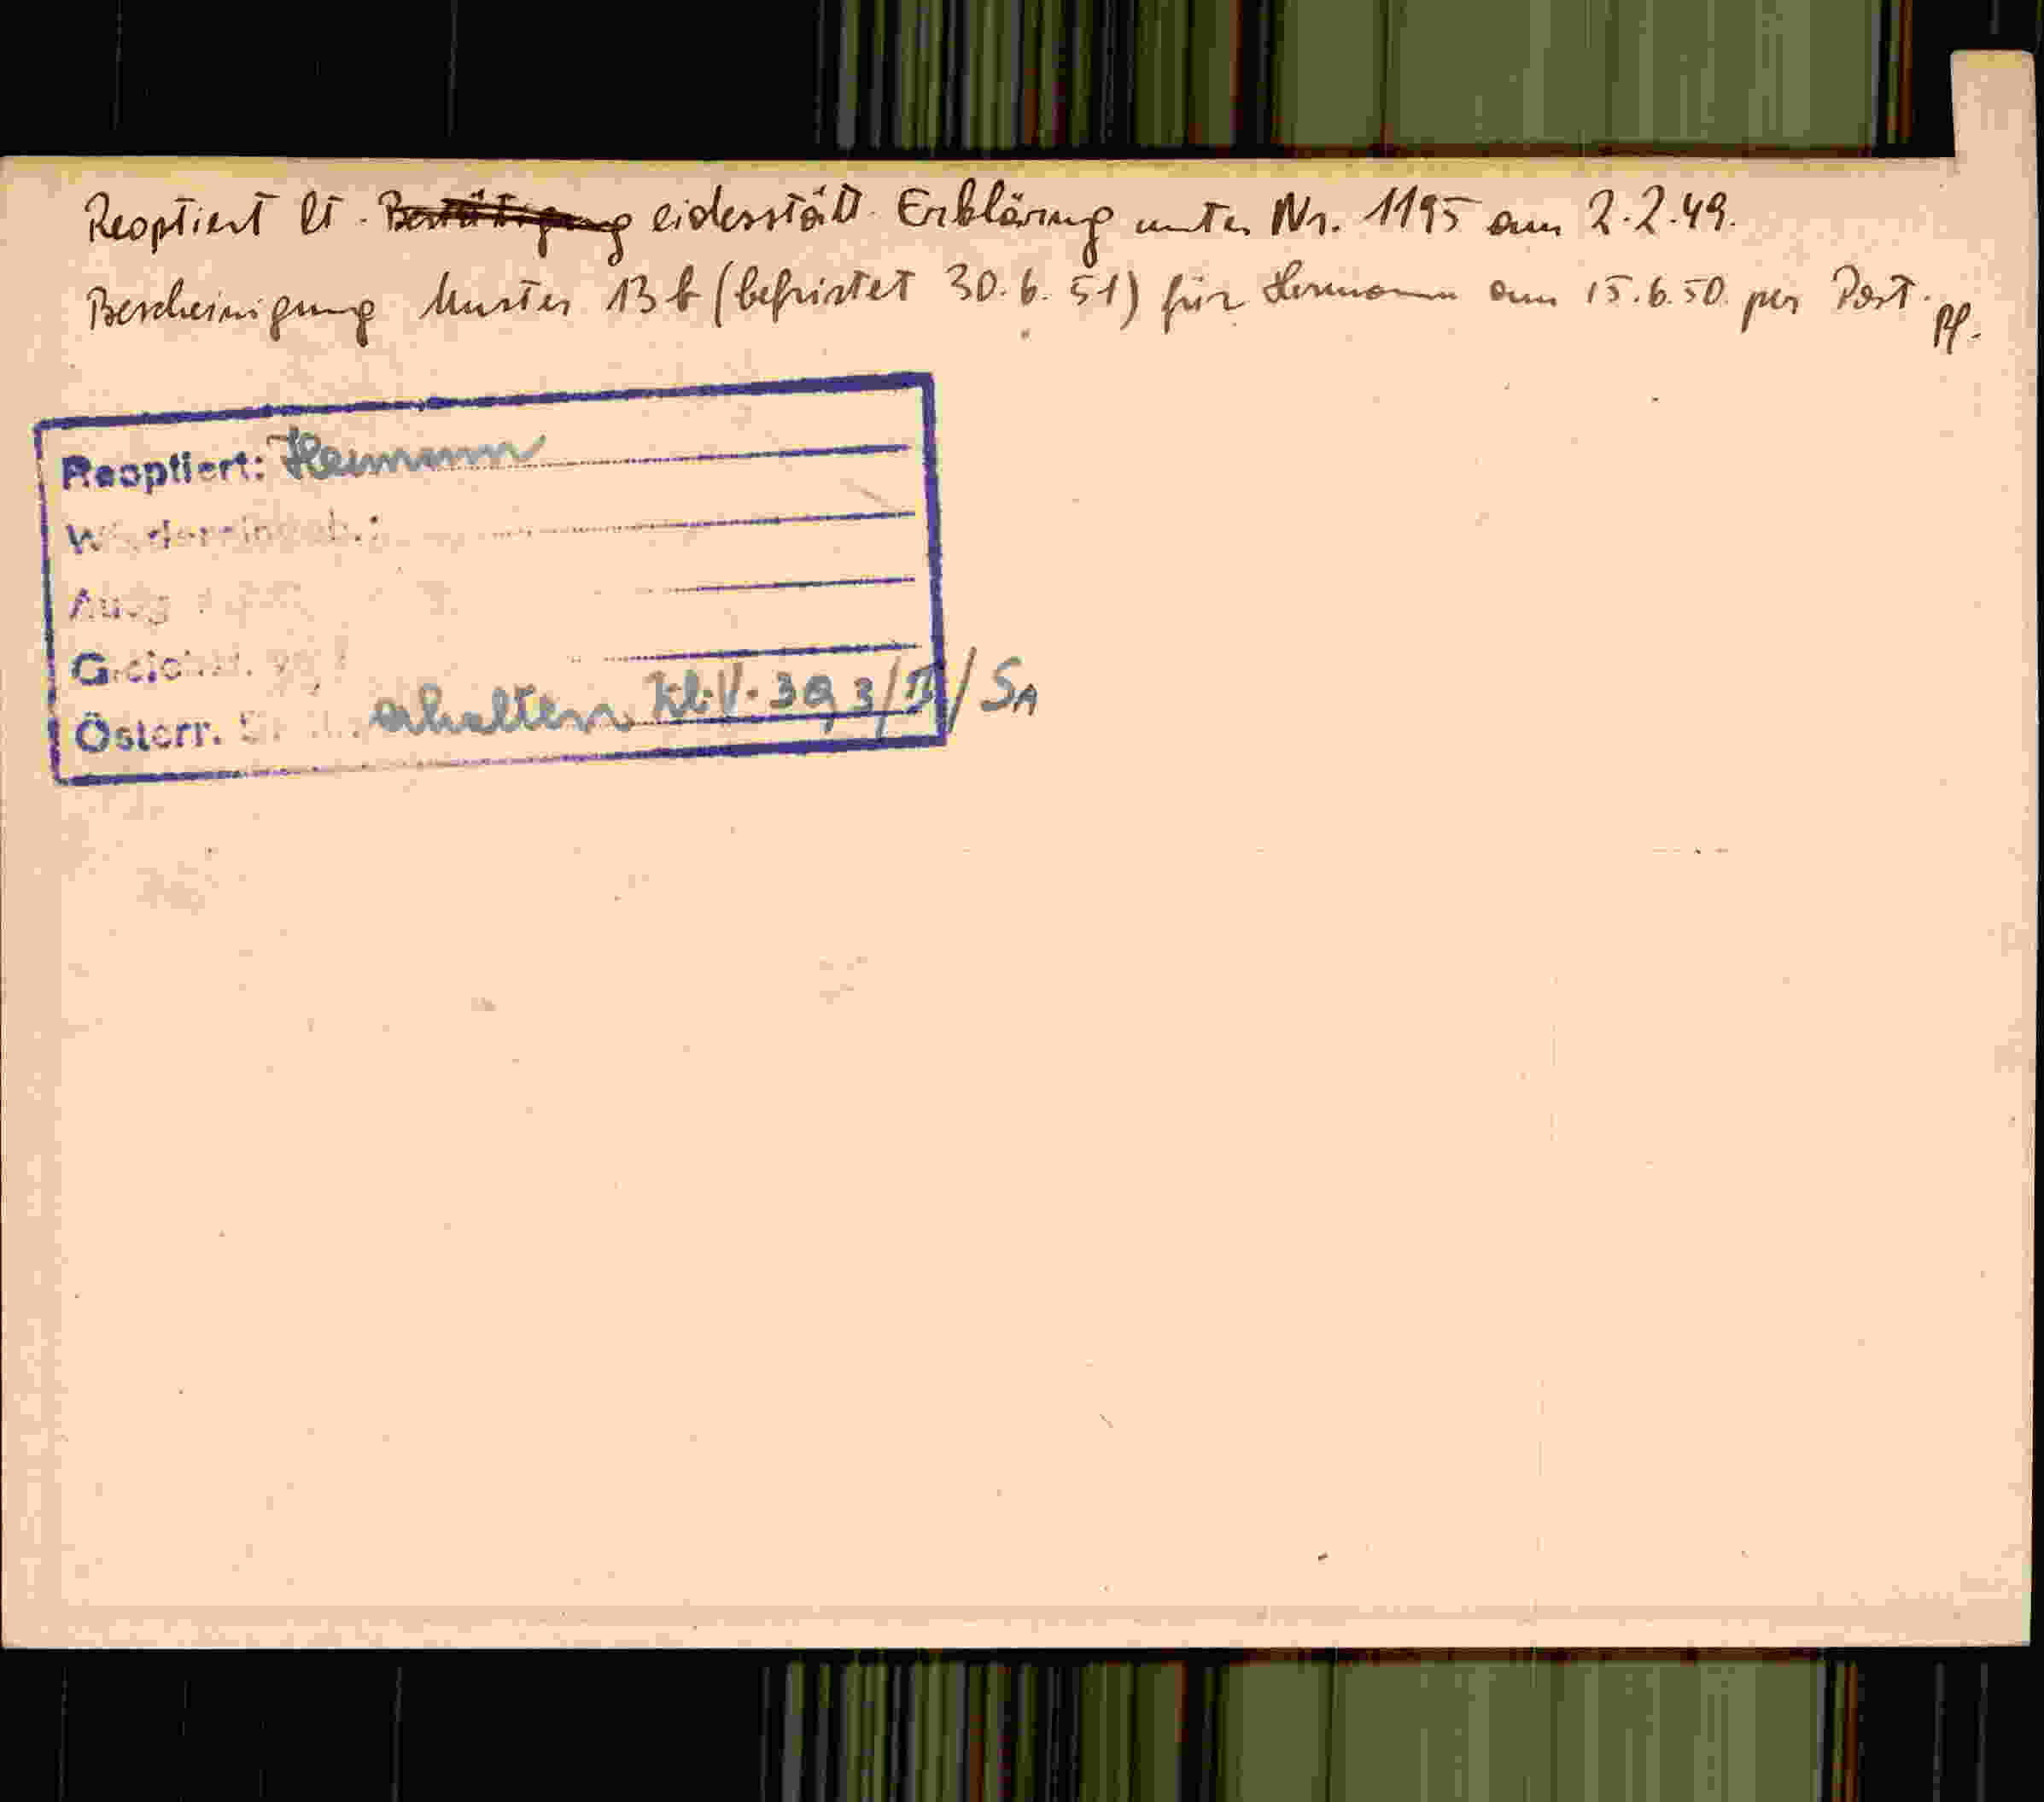 Reoptiert lt. Bestätigung eidesstätt. Erklärung unter Nr. 1195 am 2.2.49.
Bescheinigung Muster 13 b (befristet 30.6.51) für Hermann am 15.6.50. per Post. Pf.
Reoptiert: Hermann
Österr.
erhalten Zl. V-393/II/SA